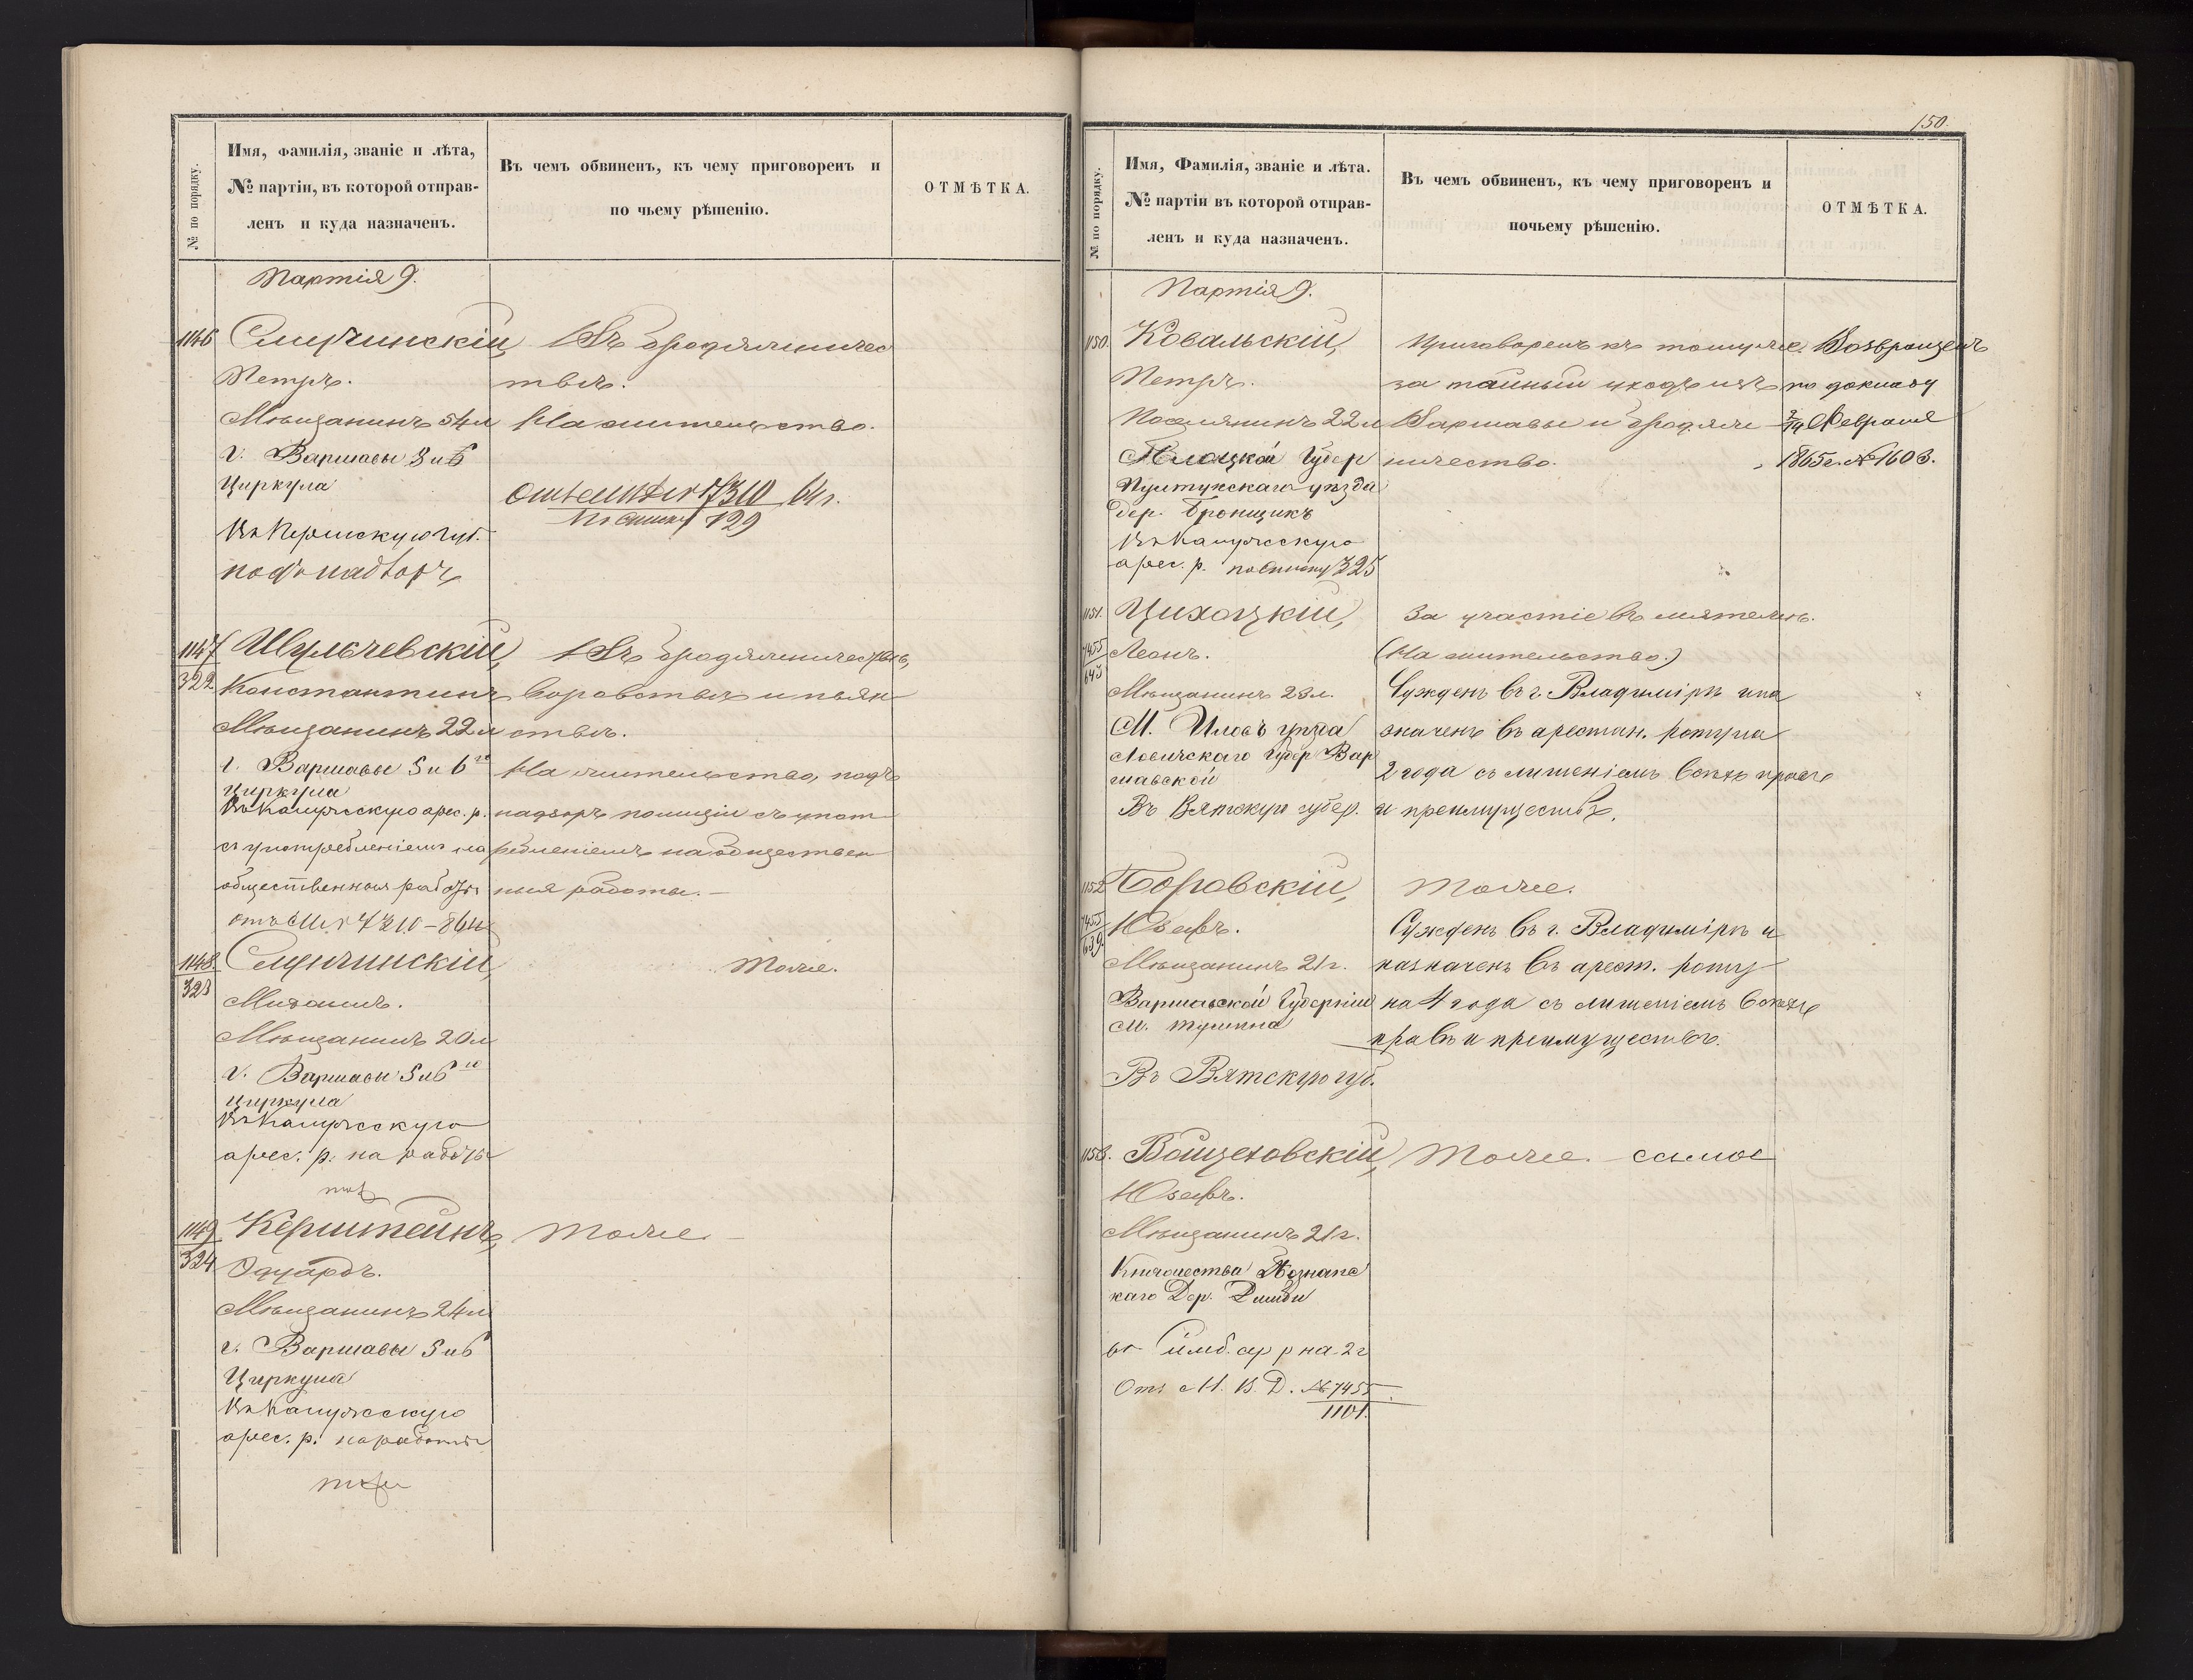 № по порядку.
Имя, фамилія, званіе и лѣта,
№ партіи, въ которой отправ-
ленъ и куда назначенъ.
Въ чемъ обвиненъ, къ чему приговоренъ и
по чьему рѣшенію.
ОТМѢТКА.
Партія 9.
1146
Петръ.
Мѣщанинъ 54 л
г. Варшавы 5 и 6
Циркула
Въ Пермскую губ.
подъ надзоръ
Въ бродяжничес
твѣ.
На жительство.
7310 64 г.
по списку 129
1147
322
Шульчевскій,
Константинъ
Мѣщанинъ 22 л
г. Варшавы 5 и 6го
циркула
Въ Калужскую арес. р.
съ употребленіемъ на
общественныя работы
Въ бродяжничествѣ,
воровствѣ и пьян
ствѣ.
На жительство, подъ
надзоръ полиціи съ упот
ребленіемъ на обществен
ныя работы. —
1148.
323
Михаилъ.
Мѣщанинъ 20 л
г. Варшавы 5 и 6го
циркула
Въ Калужскую
арес. р. на работы
Тоже.
1149
324
Керштейнъ,
Эдуардъ.
Мѣщанинъ 24 л
г. Варшавы 5 и 6
Циркула
Въ Калужскую
арес. р. на работы
Тоже. —
150.
№ по порядку.
Имя, Фамилія, званіе и лѣта.
№ партіи въ которой отправ-
ленъ и куда назначенъ.
Въ чемъ обвиненъ, къ чему приговоренъ и
почьему рѣшенію.
ОТМѢТКА.
Партія 9.
1150.
Ковальскій,
Петръ.
Поселянинъ 22 л
Плоцкой Губер
Пултускаго уѣзда
дер. Бронщикъ
Въ Калужскую
арес. р. по списку 325
Приговоренъ къ тому же
за тайный уходъ изъ
Варшавы и бродяж
ничество.
Возвращенъ
по докладу
2/14 Февраля
1865 г. № 1603.
1151.
7455
645
Цихоцкій,
Леонъ.
Мѣщанинъ 23 л.
М. Иловъ уѣзда
Ловичскаго Губер Вар
шавской
Въ Вятскую губер.
За участіе въ мятежѣ.
(На жительство.)
Сужденъ въ г. Владимірѣ и на
значенъ въ арестан. роту на
2 года съ лишеніемъ всѣхъ правъ
и преимуществъ.
1152
7455
639
Боровскій,
Юзефъ.
Мѣщанинъ 21 г.
Варшавской Губерніи
М.
Въ Вятскую губ.
Тоже.
Сужденъ въ г. Владимірѣ и
назначенъ въ арест. роту
на 4 года съ лишеніемъ всѣхъ
правъ и преимуществъ.
1153.
Войцеховскій,
Юзефъ.
Мѣщанинъ 21 г.
Княжества Познанс
каго Дер.
въ Симб. ар р на 2 г
Отъ М. В. Д. № 7455
1101.
Тоже. самое